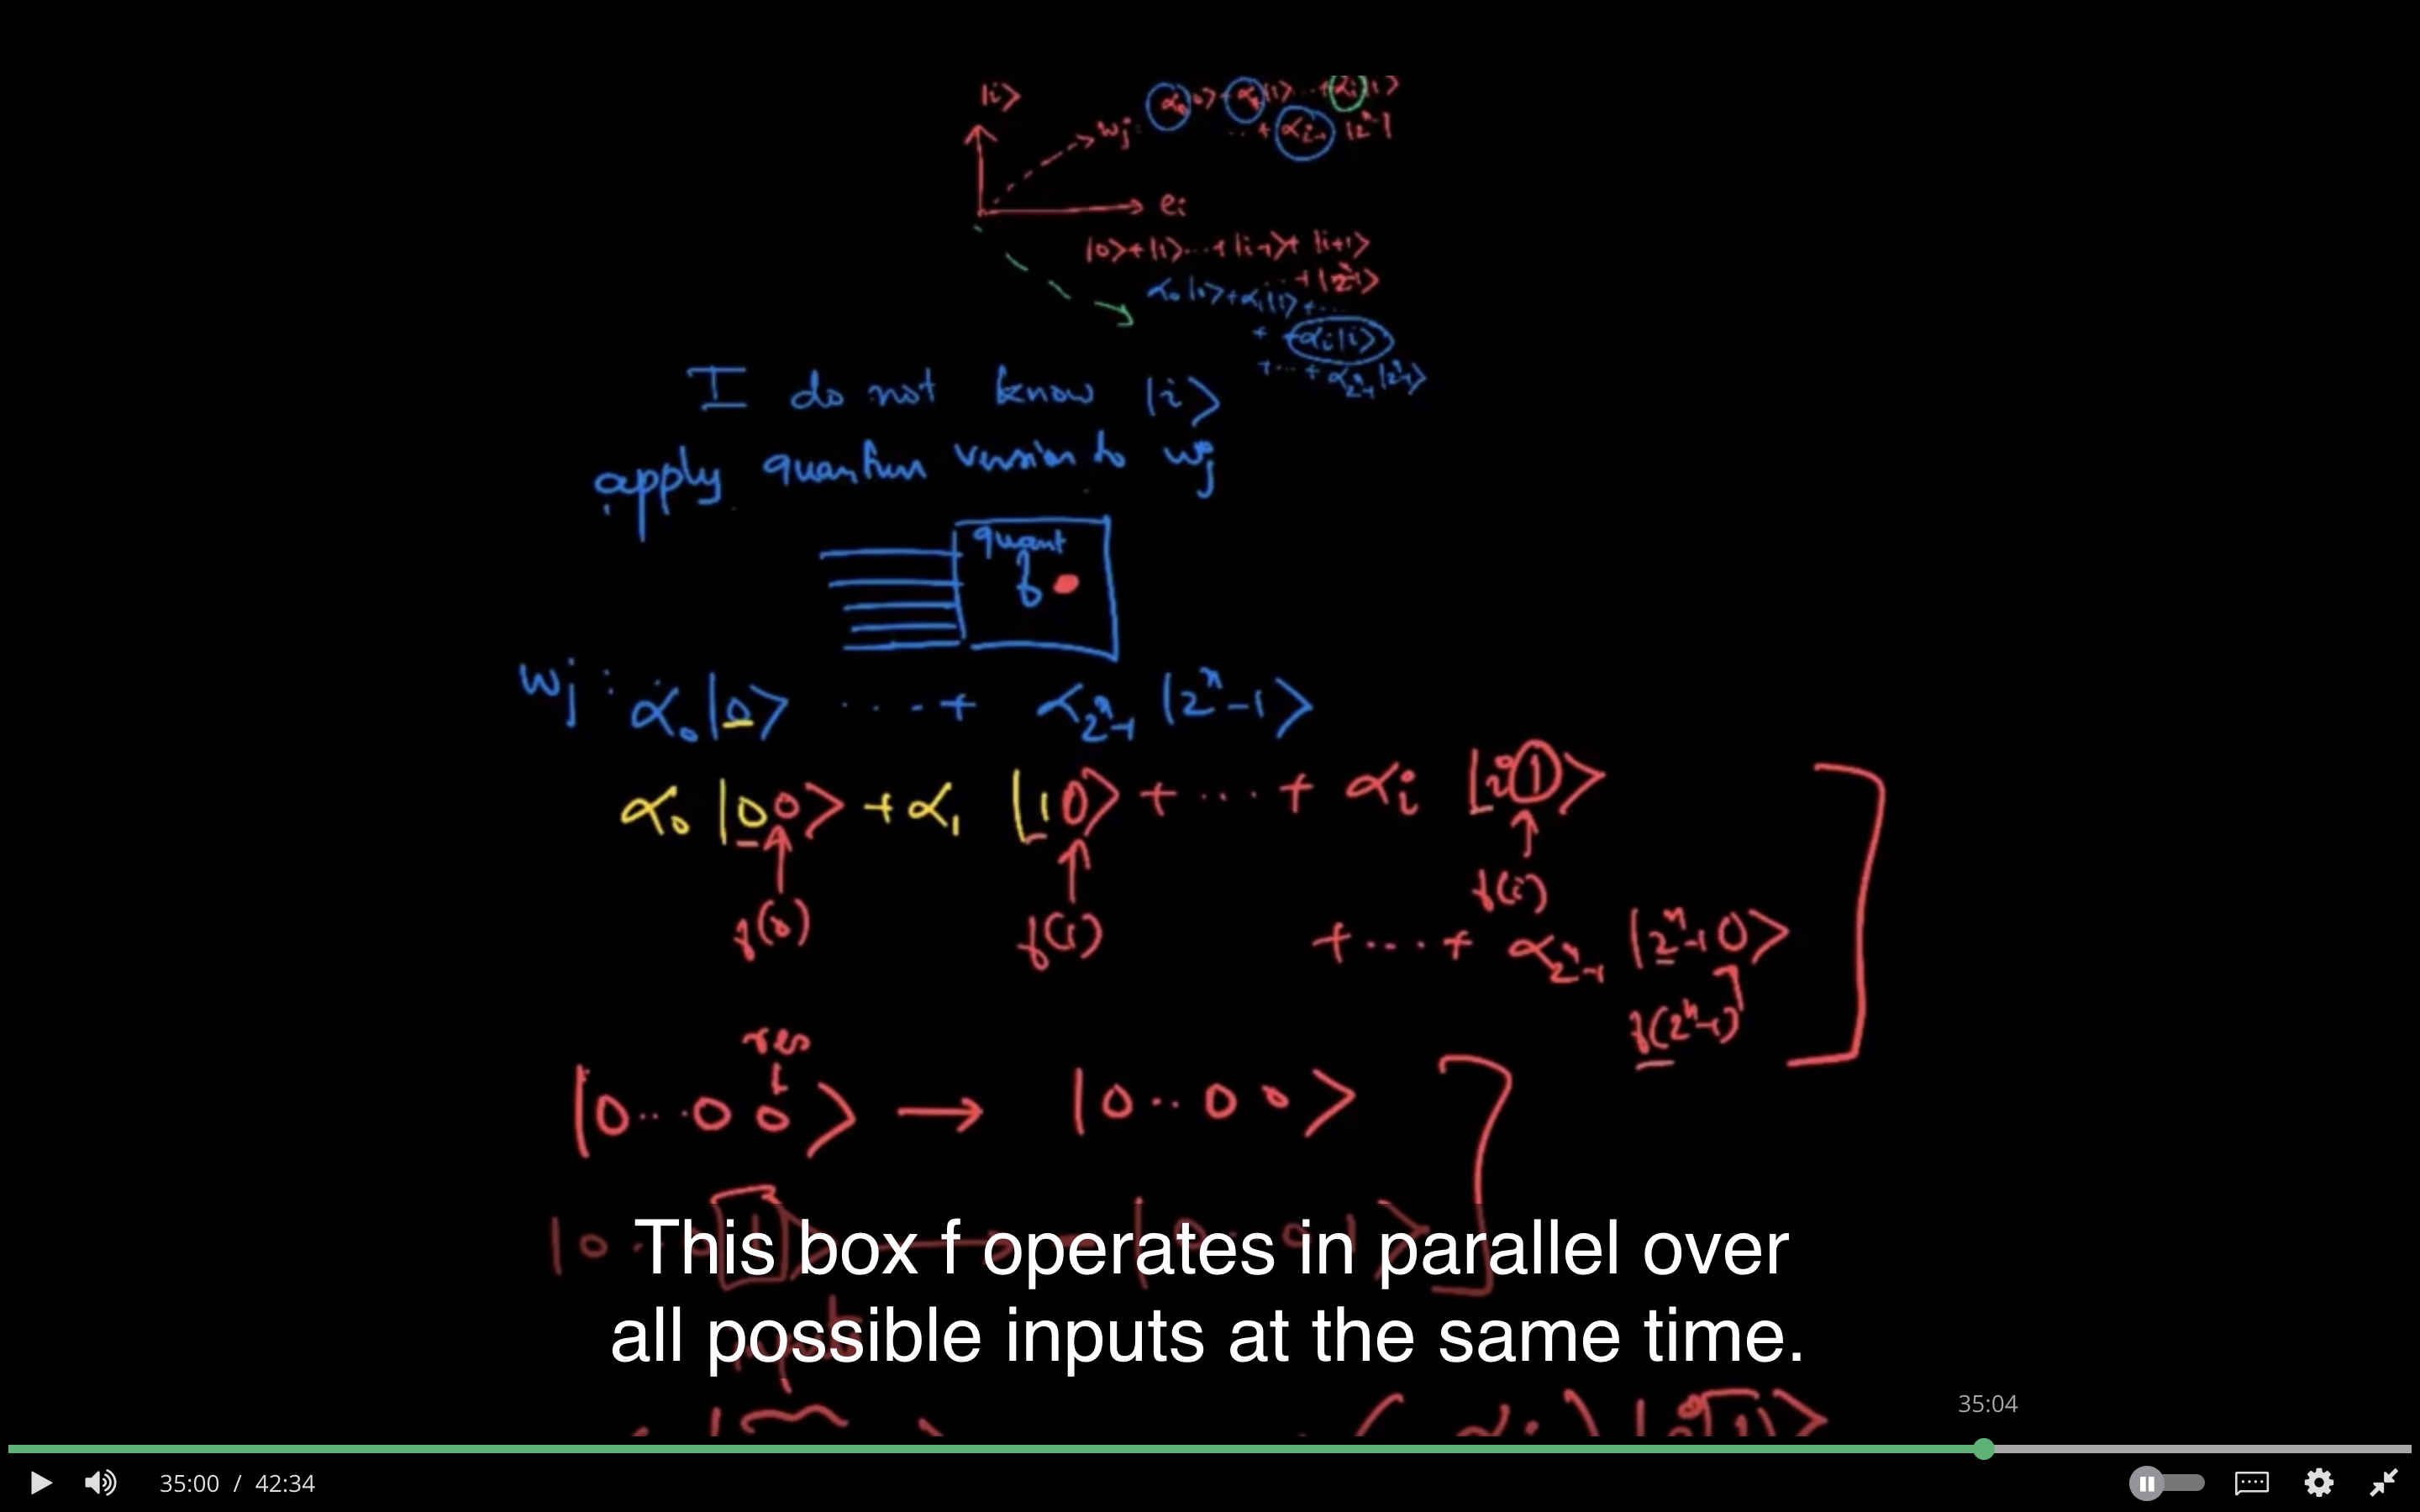 |i>
wj: α0|0> + α1|1> ... + αi|i>
... + αi-1 |2^n-1
ei
|0>+|1>...+|i-1>+ |i+1>
... + |2^n-1>
α0|0>+α1|1>+...
+ -αi|i>
+...+ α2^n-1|2^n-1>
I do not know |i>
apply quantum version to wj
quant
f
wj: α0|0> ...+ α2^n-1 |2^n-1>
α0|0 0> + α1 |1 0> + ... + αi |i 1>
f(0) f(1) f(i)
+ ... + α2^n-1 |2^n-1 0>
f(2^n-1)
res
|0...0 0> → |0..0 0>
This box f operates in parallel over
all possible inputs at the same time.
35:04
35:00 / 42:34